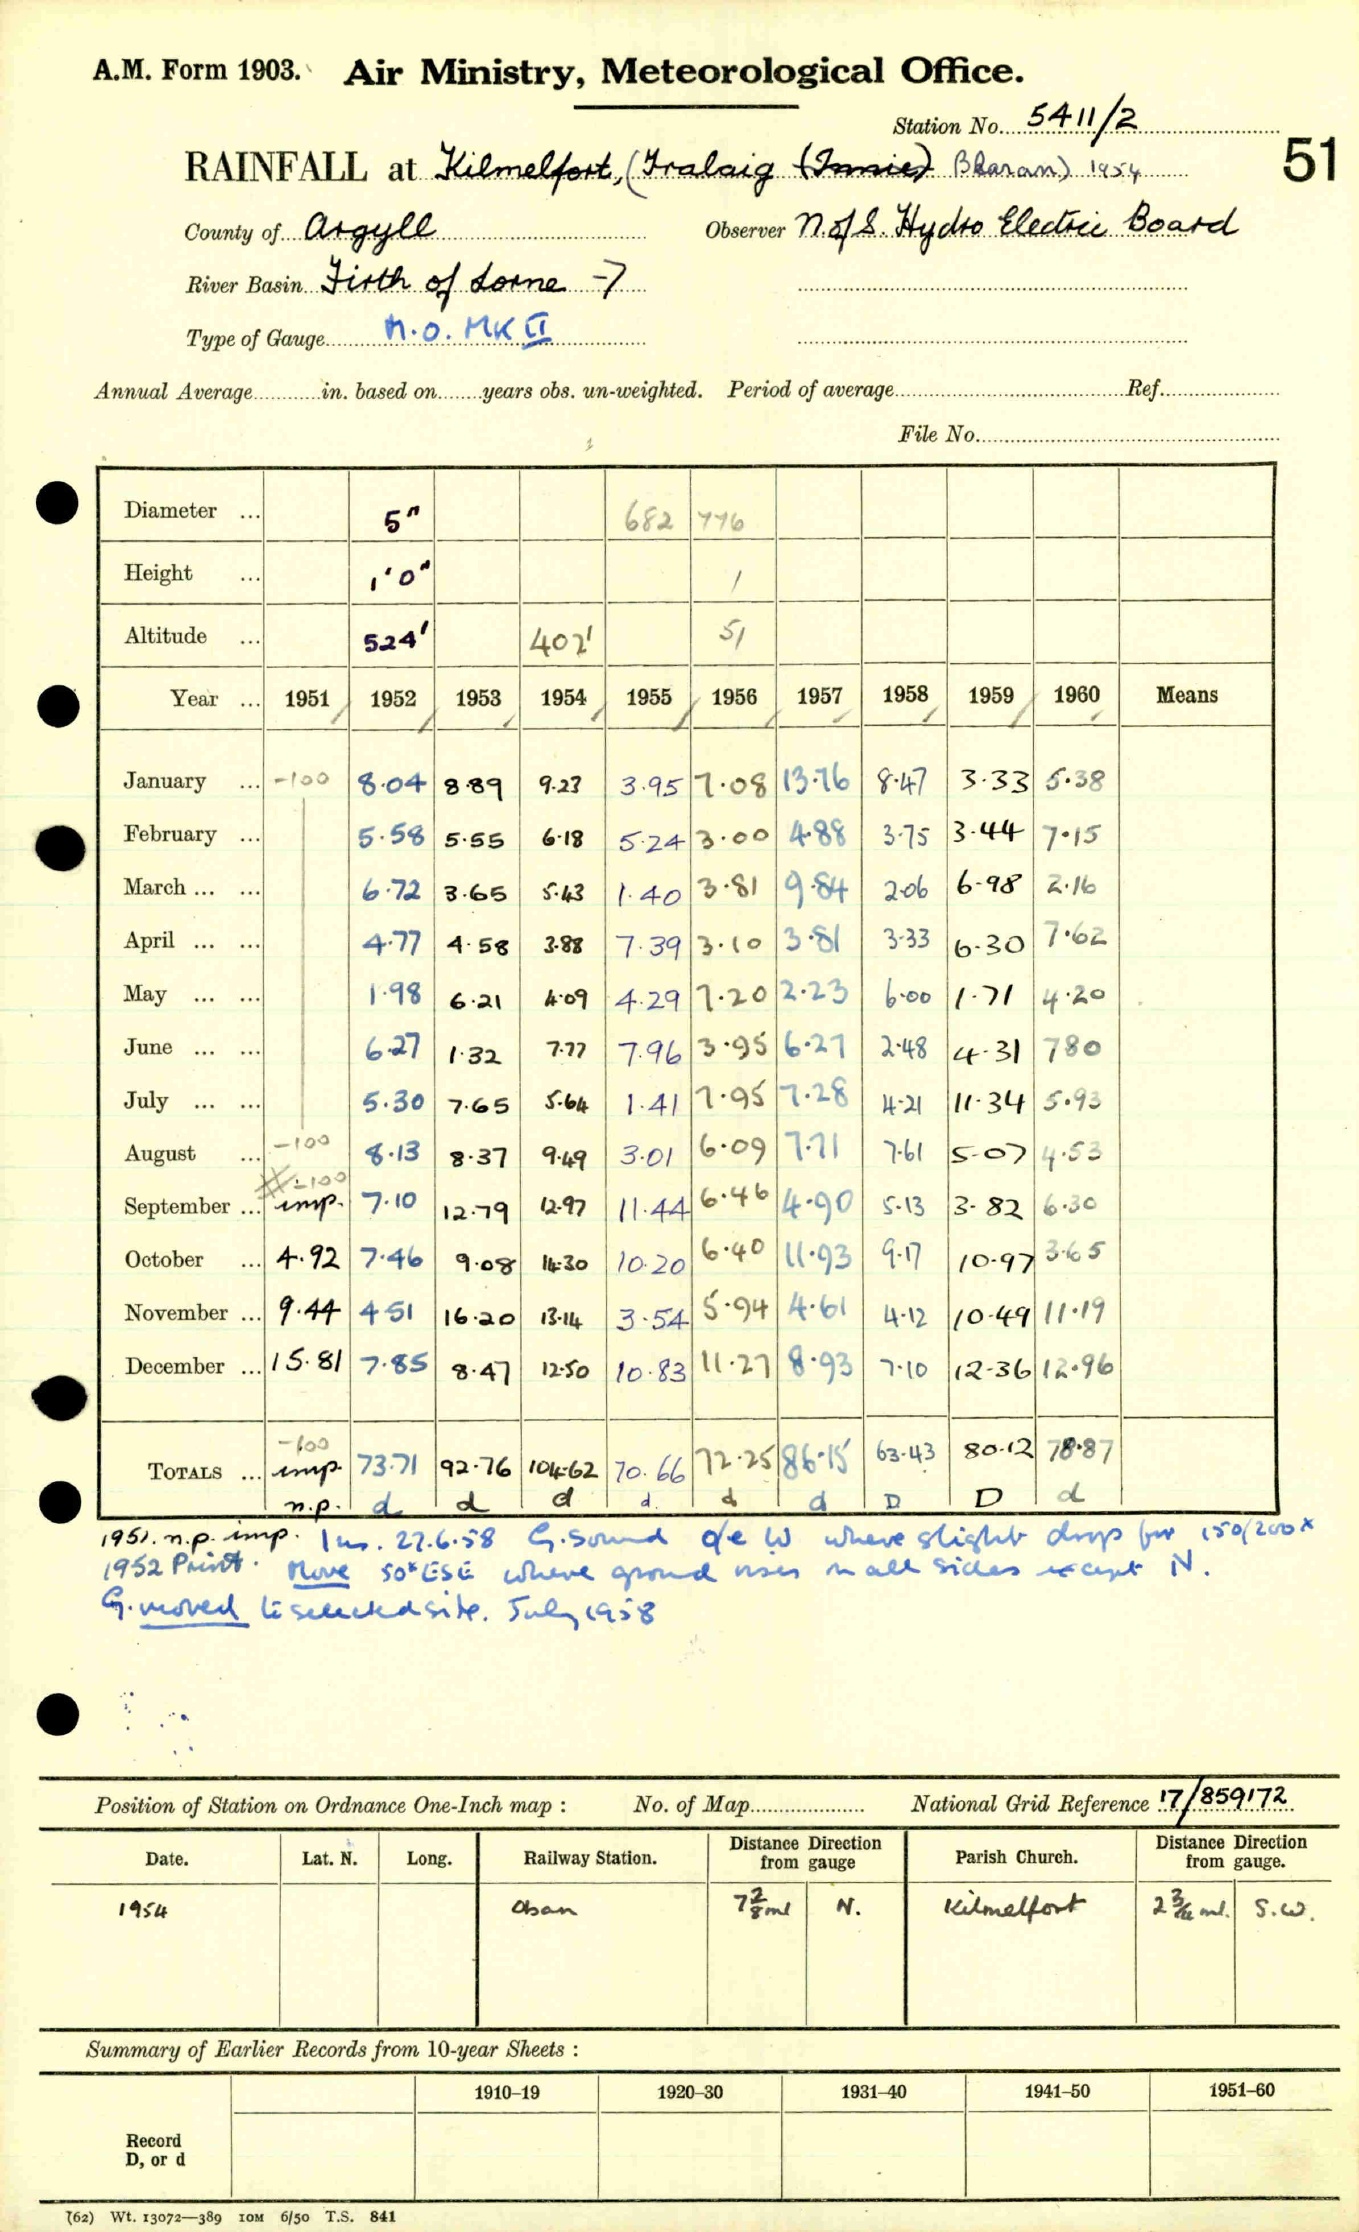 A.M. Form 1903. Air Ministry, Meteorological Office.
Station No. 5411/2
RAINFALL at Kilmelfort, (Tralaig (Innie) Bharan) 1954
51
County of Argyll Observer N. of S. Hydro Electric Board
River Basin Firth of Lorne -7
Type of Gauge M.O. MK II
Annual Average in. based on years obs. un-weighted. Period of average Ref.
File No.
Diameter ... 5" 682 776
Height ... 1'0" 1
Altitude ... 524' 402' 51
Year ... 1951 1952 1953 1954 1955 1956 1957 1958 1959 1960 Means
January ... -100 8.04 8.89 9.23 3.95 7.08 13.76 8.47 3.33 5.38
February ... 5.58 5.55 6.18 5.24 3.00 4.88 3.75 3.44 7.15
March ... ... 6.72 3.65 5.43 1.40 3.81 9.84 2.06 6.98 2.16
April ... ... 4.77 4.58 3.88 7.39 3.10 3.81 3.33 6.30 7.62
May ... ... 1.98 6.21 4.09 4.29 7.20 2.23 6.00 1.71 4.20
June ... ... 6.27 1.32 7.77 7.96 3.95 6.27 2.48 4.31 780
July ... ... 5.30 7.65 5.64 1.41 7.95 7.28 4.21 11.34 5.93
August ... -100 8.13 8.37 9.49 3.01 6.09 7.71 7.61 5.07 4.53
-100
September ... imp. 7.10 12.79 12.97 11.44 6.46 4.90 5.13 3.82 6.30
October ... 4.92 7.46 9.08 14.30 10.20 6.40 11.93 9.17 10.97 3.65
November ... 9.44 4.51 16.20 13.14 3.54 5.94 4.61 4.12 10.49 11.19
December ... 15.81 7.85 8.47 12.50 10.83 11.27 8.93 7.10 12.36 12.96
-100
TOTALS ... imp. 73.71 92.76 104.62 70.66 72.25 86.15 63.43 80.12 78.87
n.p. d d d d. d d D D d
1951. n.p. imp. Ins. 27.6.58 G. Sound o/e W where slight drop for 150/200x
1952 Print. Move 50x ESE where ground rises on all sides except N.
G. moved to selected site. July 1958
Position of Station on Ordnance One-Inch map : No. of Map National Grid Reference 17/859172
Date. Lat. N. Long. Railway Station. Distance Direction from gauge Parish Church. Distance Direction from gauge.
1954 Oban 7 2/8 ml N. Kilmelfort 2 3/4 ml. S.W.
Summary of Earlier Records from 10-year Sheets :
1910–19 1920–30 1931–40 1941–50 1951–60
Record
D, or d
(62) Wt. 13072—389 10M 6/50 T.S. 841